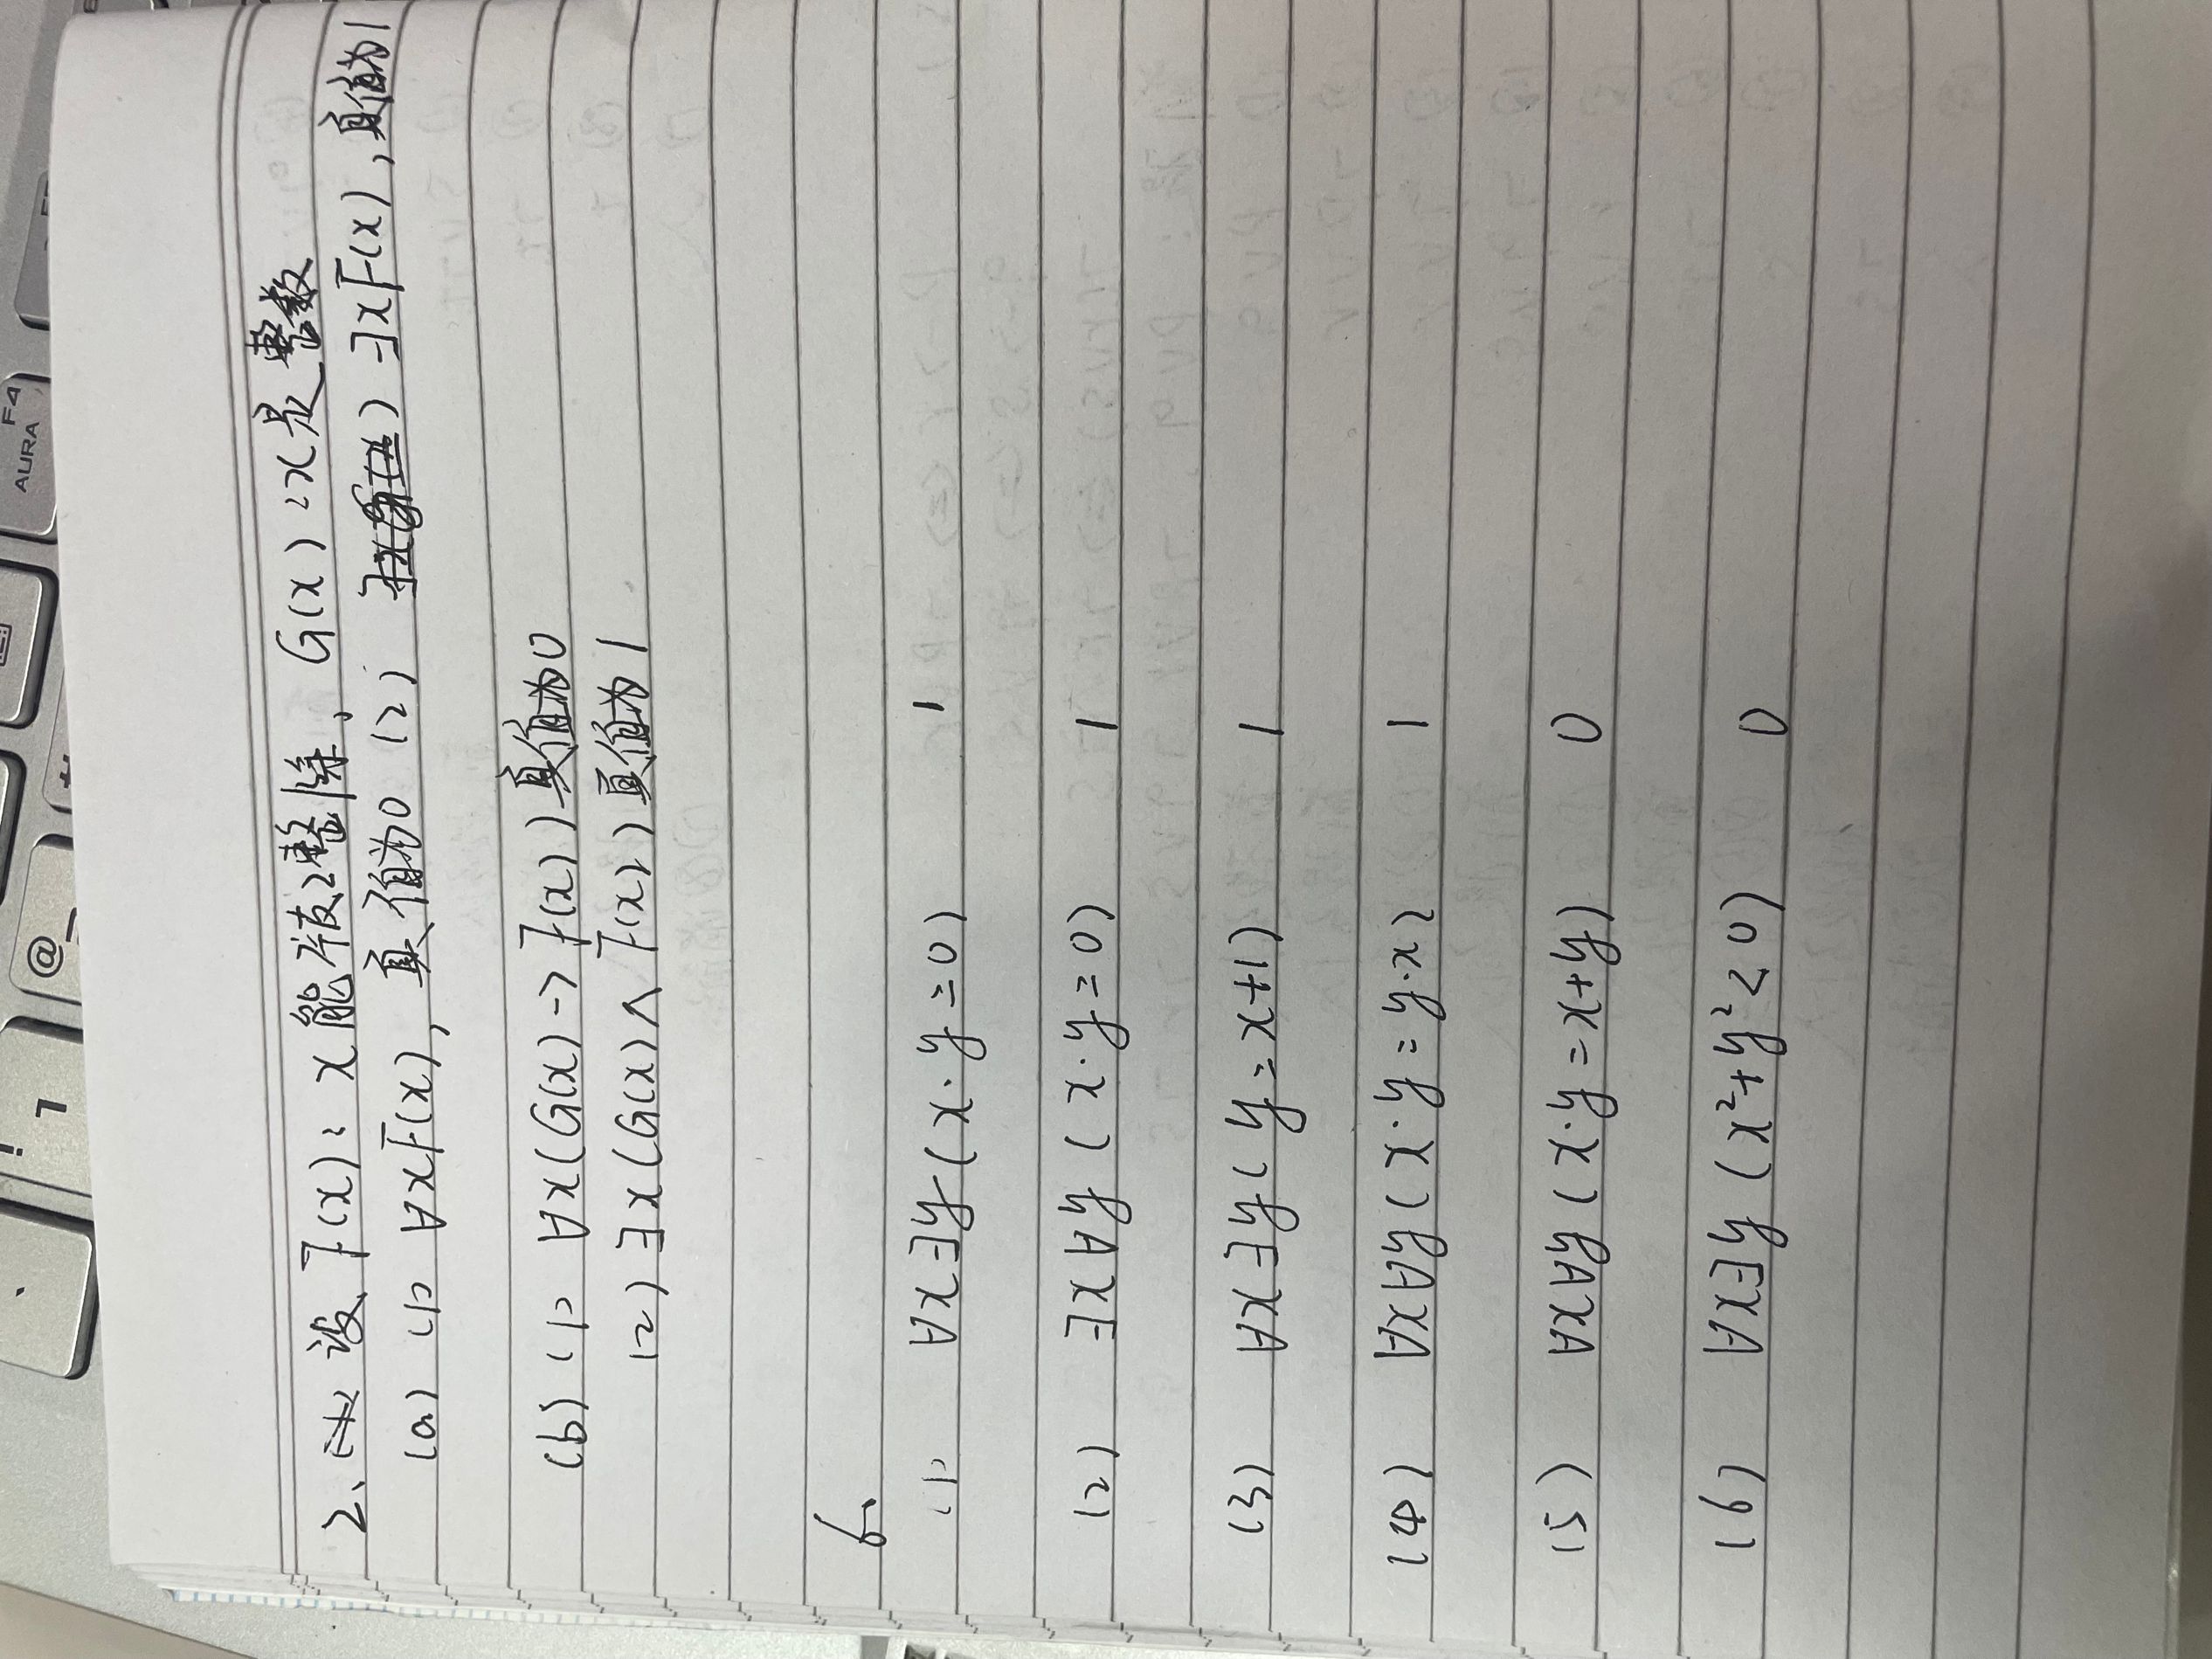 !
1
@
F4
AURA
2、设 F(x)：x能被2整除，G(x)：x是整数
(a) (1) ∀xF(x)，真值为0 (2) ∃xF(x)，真值为1
(b) (1) ∀x(G(x)->F(x))真值为0
(2) ∃x(G(x)∧F(x))真值为1
6.
(1) ∀x∃y(x·y=0) 1
(2) ∃x∀y(x·y=0) 1
(3) ∀x∃y(y=x+1) 1
(4) ∀x∀y(x·y=y·x) 1
(5) ∀x∀y(x·y=x+y) 0
(6) ∀x∃y(x²+y²<0) 0